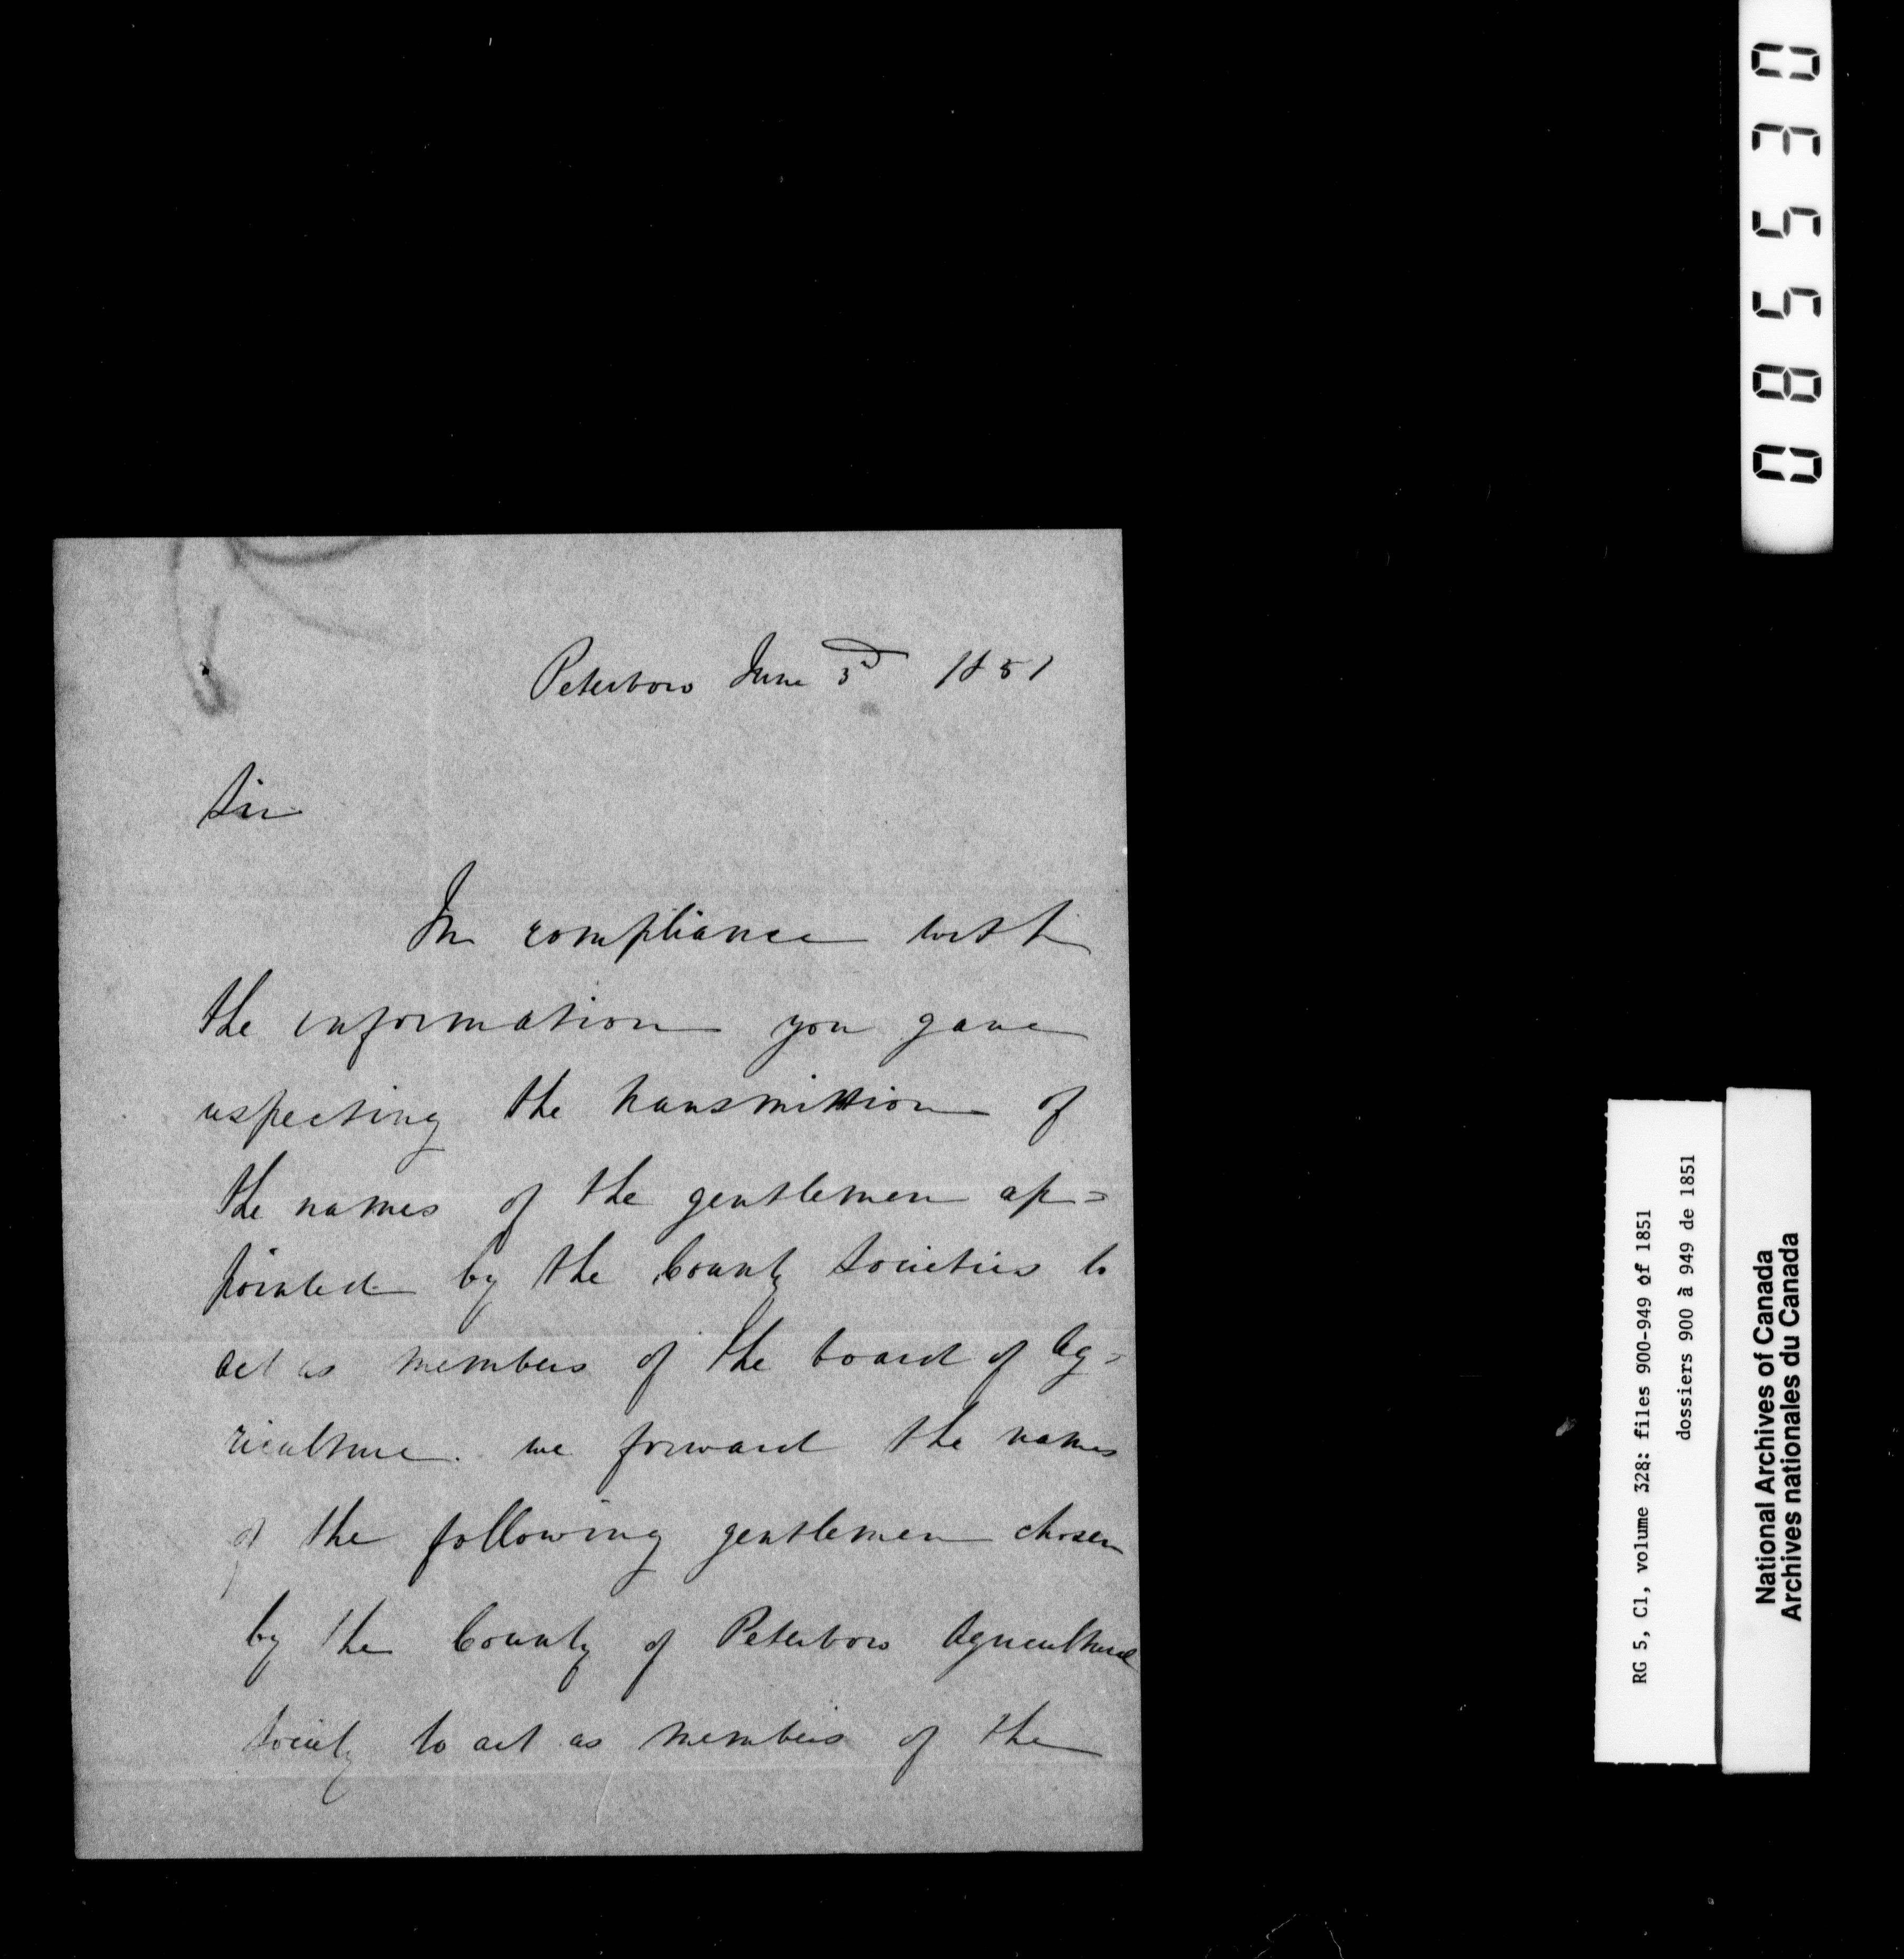 Peterboro June 3d 1851
Sir
In compliance with
the information you gave
respecting the transmission of
the names of the gentlemen ap=
pointed by the County Societies to
act as members of the board of Ag=
riculture. we forward the names
of the following gentlemen chosen
by the County of Peterboro Agricultural
Society to act as members of the
085530
RG 5, C1, volume 328: files 900-949 of 1851
dossiers 900 à 949 de 1851
National Archives of Canada
Archives nationales du Canada